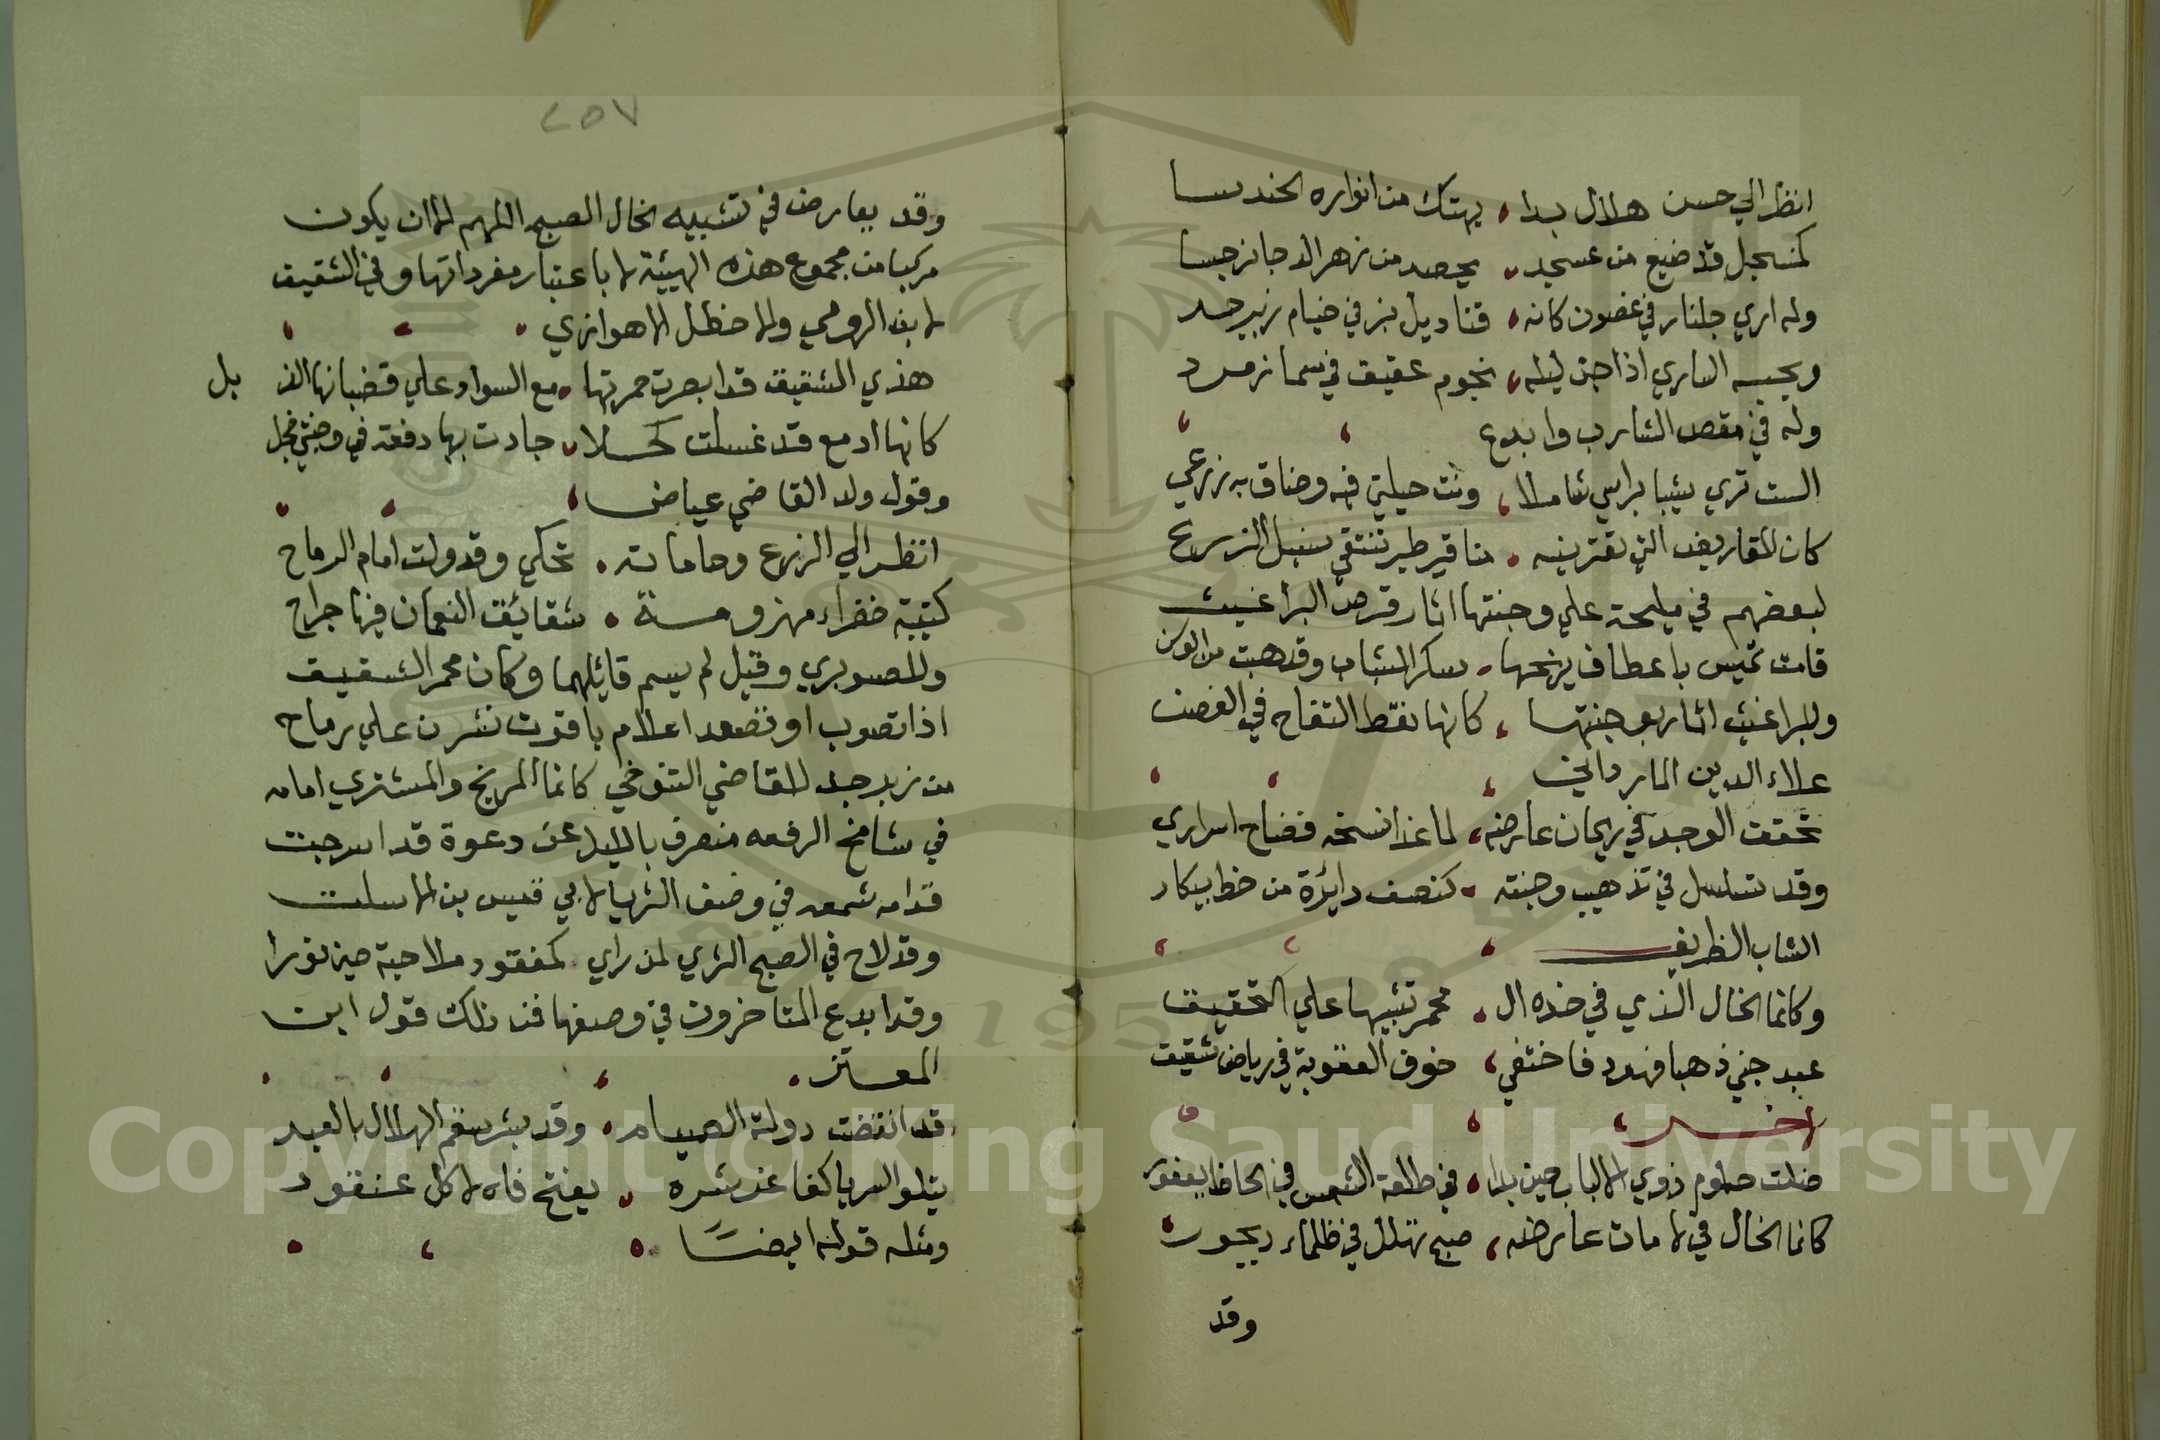 انظر الي حسن هلال بدا ، يهتك من انواره الحندسا
كمنجل قد صيغ من عسجد ، يحصد من زهر الدجا نرجسا
وله اري جلنار في غصون كانه ، قناديل نبر في خيام زبرجد
ويحسبه الساري اذا جن ليله ، نجوم عقيق في سما زمرد
وله في مقص الشارب وابدع
الست تري شيبا براسي شاملا ، ونت حيلتي فيه وضاق به ذرعي
كان المقاريض التي يقترينه ، مناقير طير تنتقي سنبل الزرع
لبعضهم في مليحة علي وجنتها اثار قرص البراغيث
قامت تميس باعطاف يرنحها ، سكر الشباب وقد هبت من الوسن
وللبراغيث اثار بوجنتها ، كانها نقط التفاح في الغصن
علاء الدين المارداني
تحققت الوجد في ريحان عارضه ، لما غدا نسخه فضاح اسراري
وقد تسلسل في تذهيب وجنته ، كنصف دايرة من خط بيكار
الشاب الظريف
وكانما الخال الذي في خده ال ، محمر تشبيها علي التحقيق
عبد جني ذهبا فهدد فاختفي ، خوف العقوبة في رياض شقيق
اخر
ضلت حلوم ذوي الالباب حين بدا ، في طلعة الشمس في الحاظ يعفور
كانما الخال في لامات عارضه ، صبح تهلل في ظلماء ديجور
وقد
٢٥٧
وقد يعارض في تشبيه الخال الصبح اللهم الا ان يكون
مركبا من مجموع هذه الهيئة لا باعتبار مفرداتها وفي الشقيق
لابن الرومي والاخطل الاهوازي
هذي الشقيق قد ابصرت حمرتها ، مع السواد علي قضبانها الذبل
كانها ادمع قد غسلت كحلا ، جادت بها دفعة في وجنتي خجل
وقول ولد القاضي عياض
انظر الي الزرع وحاماته ، تحكي وقد ولت امام الرماح
كتيبة خضراء مهزومة ، شقائق النعمان فيها جراح
وللصنوبري وقيل لم يسم قائلهما وكان محمر الشقيق
اذا تصوب او تصعد اعلام ياقوت نشرن علي رماح
من زبرجد للقاضي التنوخي كانما المريخ والمشتري امامه
في شامخ الرفعه منصرف بالليل عن دعوة قد اسرجت
قدامه شمعه في وصف الثريا لابي قيس بن الاسلت
وقد لاح في الصبح الثري لمن راي كعنقود ملاحية حين نورا
وقد ابدع المتاخرون في وصفها فمن ذلك قول ابن
المعتز
قد انقضت دولة الصيام ، وقد بشر سقم الهلال بالعيد
يتلو الثريا كفاغر شره ، يفتح فاه لاكل عنقود
ومثله قوله ايضا
Copyright © King Saud University
1957